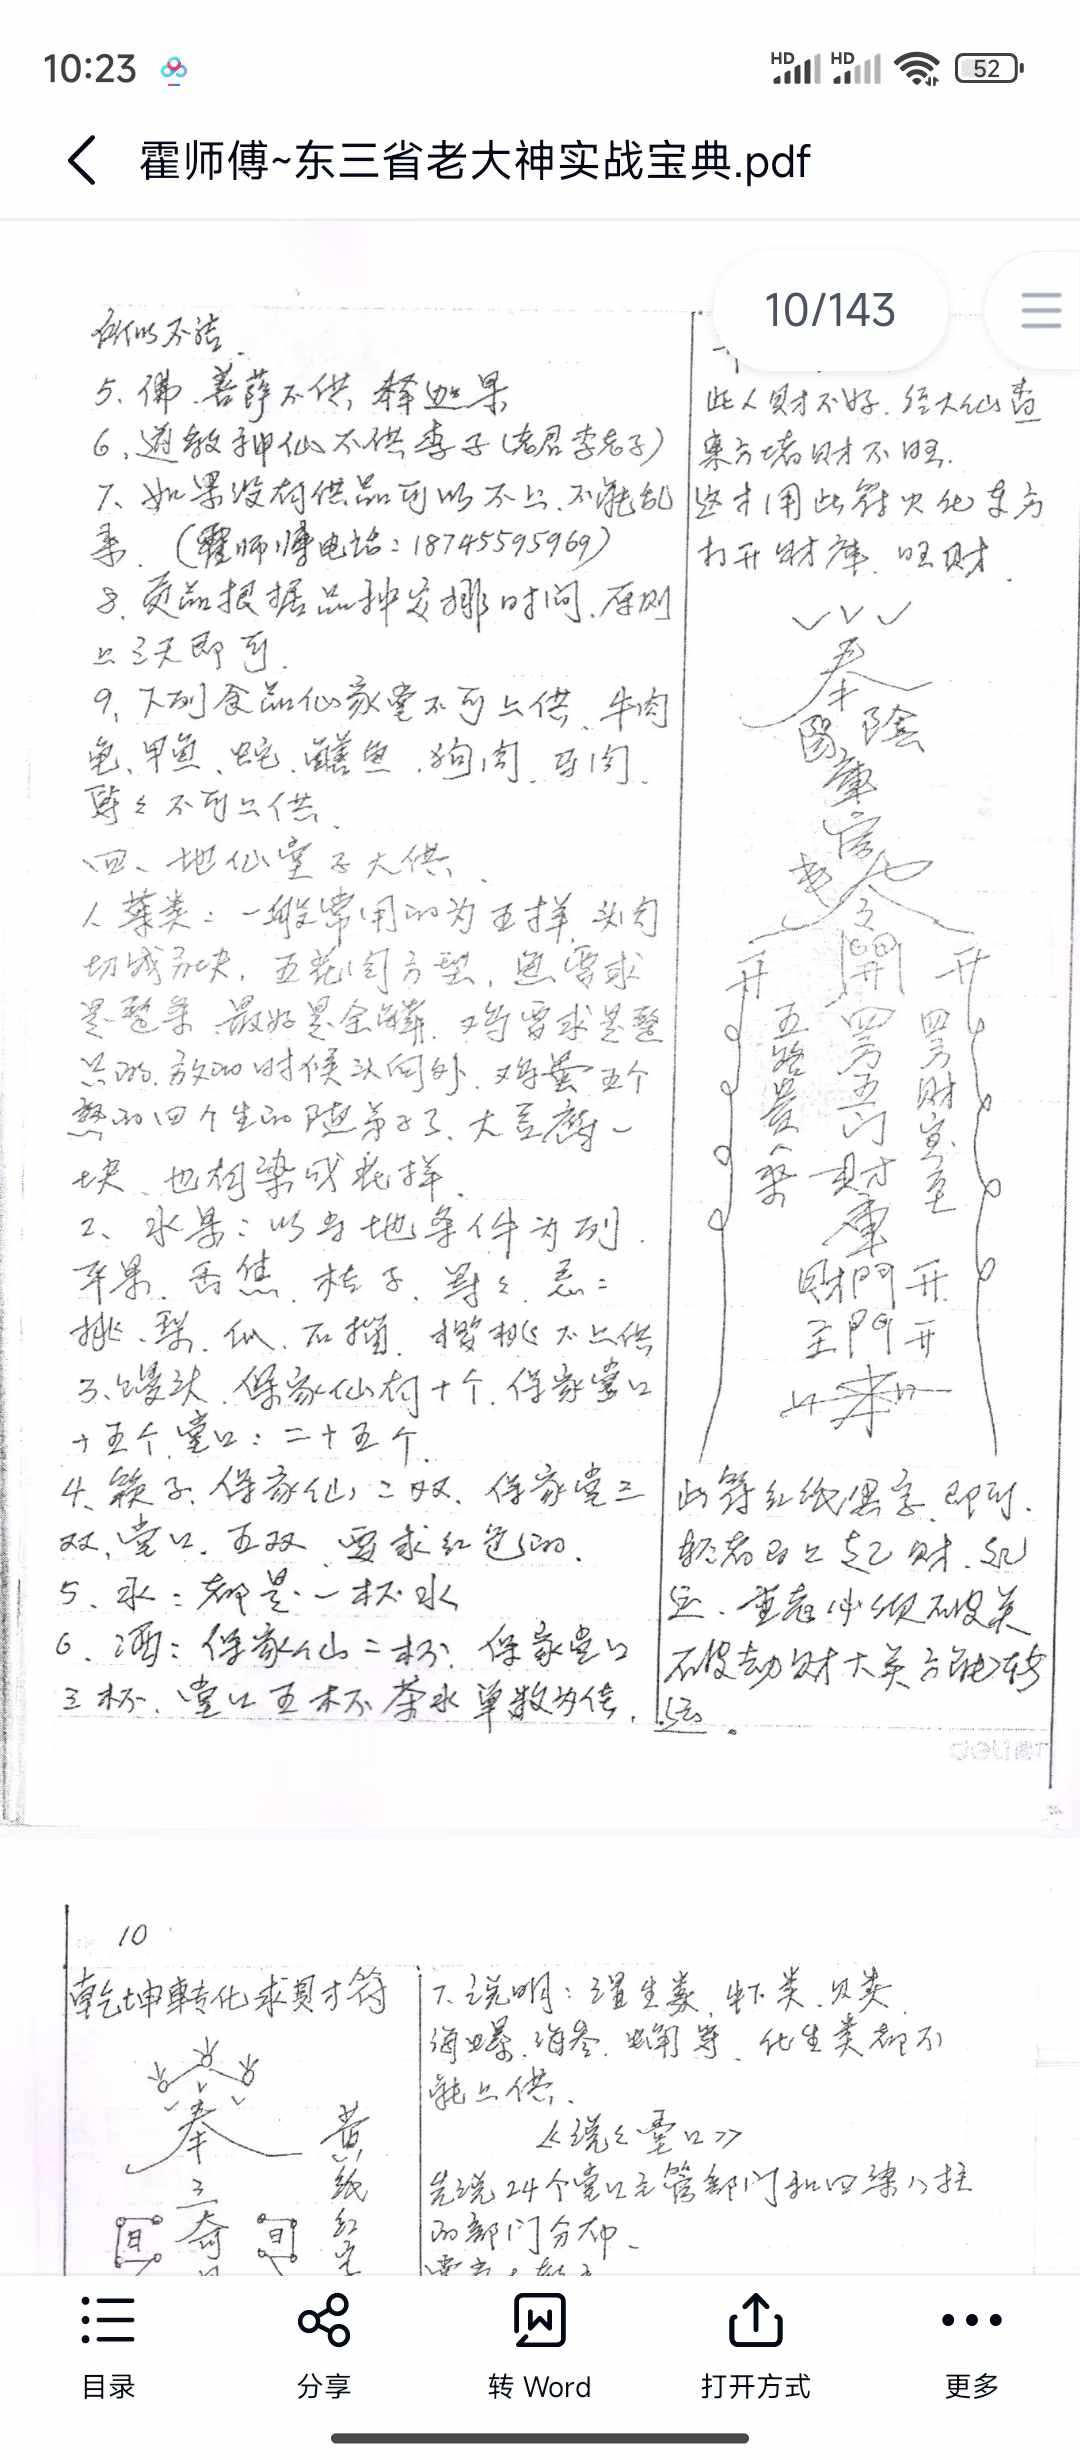 10:23
HD
HD
52
霍师傅~东三省老大神实战宝典.pdf
10/143
所以不结.
5、佛、菩萨不供释迦果
6、道教神仙不供李子(老君李老子)
7、如果没有供品可以不上、不能乱
来.(霍师傅电话:18745595969)
8、更品根据品种安排时间、原则
上三天即可.
9、下列食品仙家堂不可上供、牛肉
龟、甲鱼、蛇、鳝鱼、狗肉、马肉、
等等不可上供、
四、地仙堂子大供、
1、荤类:一般常用的为五样、头肉
切成方块,五花肉方型,鱼要求
是整条、最好是全鳞、鸡要求是整
只的、放的时候头向外、鸡蛋五个
熟的四个生的随弟子了、大豆腐一
块、也有染成花样、
2、水果:以当地条件为列、
苹果、香焦、桔子、等等、忌:
桃、梨、瓜、石榴、樱桃不上供
3、馒头、保家仙有十个、保家堂口
十五个、堂口:二十五个、
4、筷子、保家仙二双、保家堂三
双、堂口、五双、要求红色的、
5、水:都是一杯水
6、酒:保家仙二杯、保家堂口
三杯、堂口五杯茶水单数为佳、
此人财不好、经大仙查
东方堵财不旺.
这才用此符火化东方
打开财库、旺财.
奉
陽 陰
庫
官
开 開 开
五路
四方五门財庫
四方財宝
財門开
主門开
此符红纸黑字、即可、
轻者马上起财、
运、重者必须
不没劫财大关方能转
运。
10
乾坤转化求财符
奉
三
奇
日 日
黄纸红字
7、说明:湿生类、虾类、贝类、
海螺、海参、等、化生类都不
能上供、
《说说堂口》
先说24个堂口主管部门和四梁八柱
的部门分布、
目录
分享
转 Word
打开方式
更多